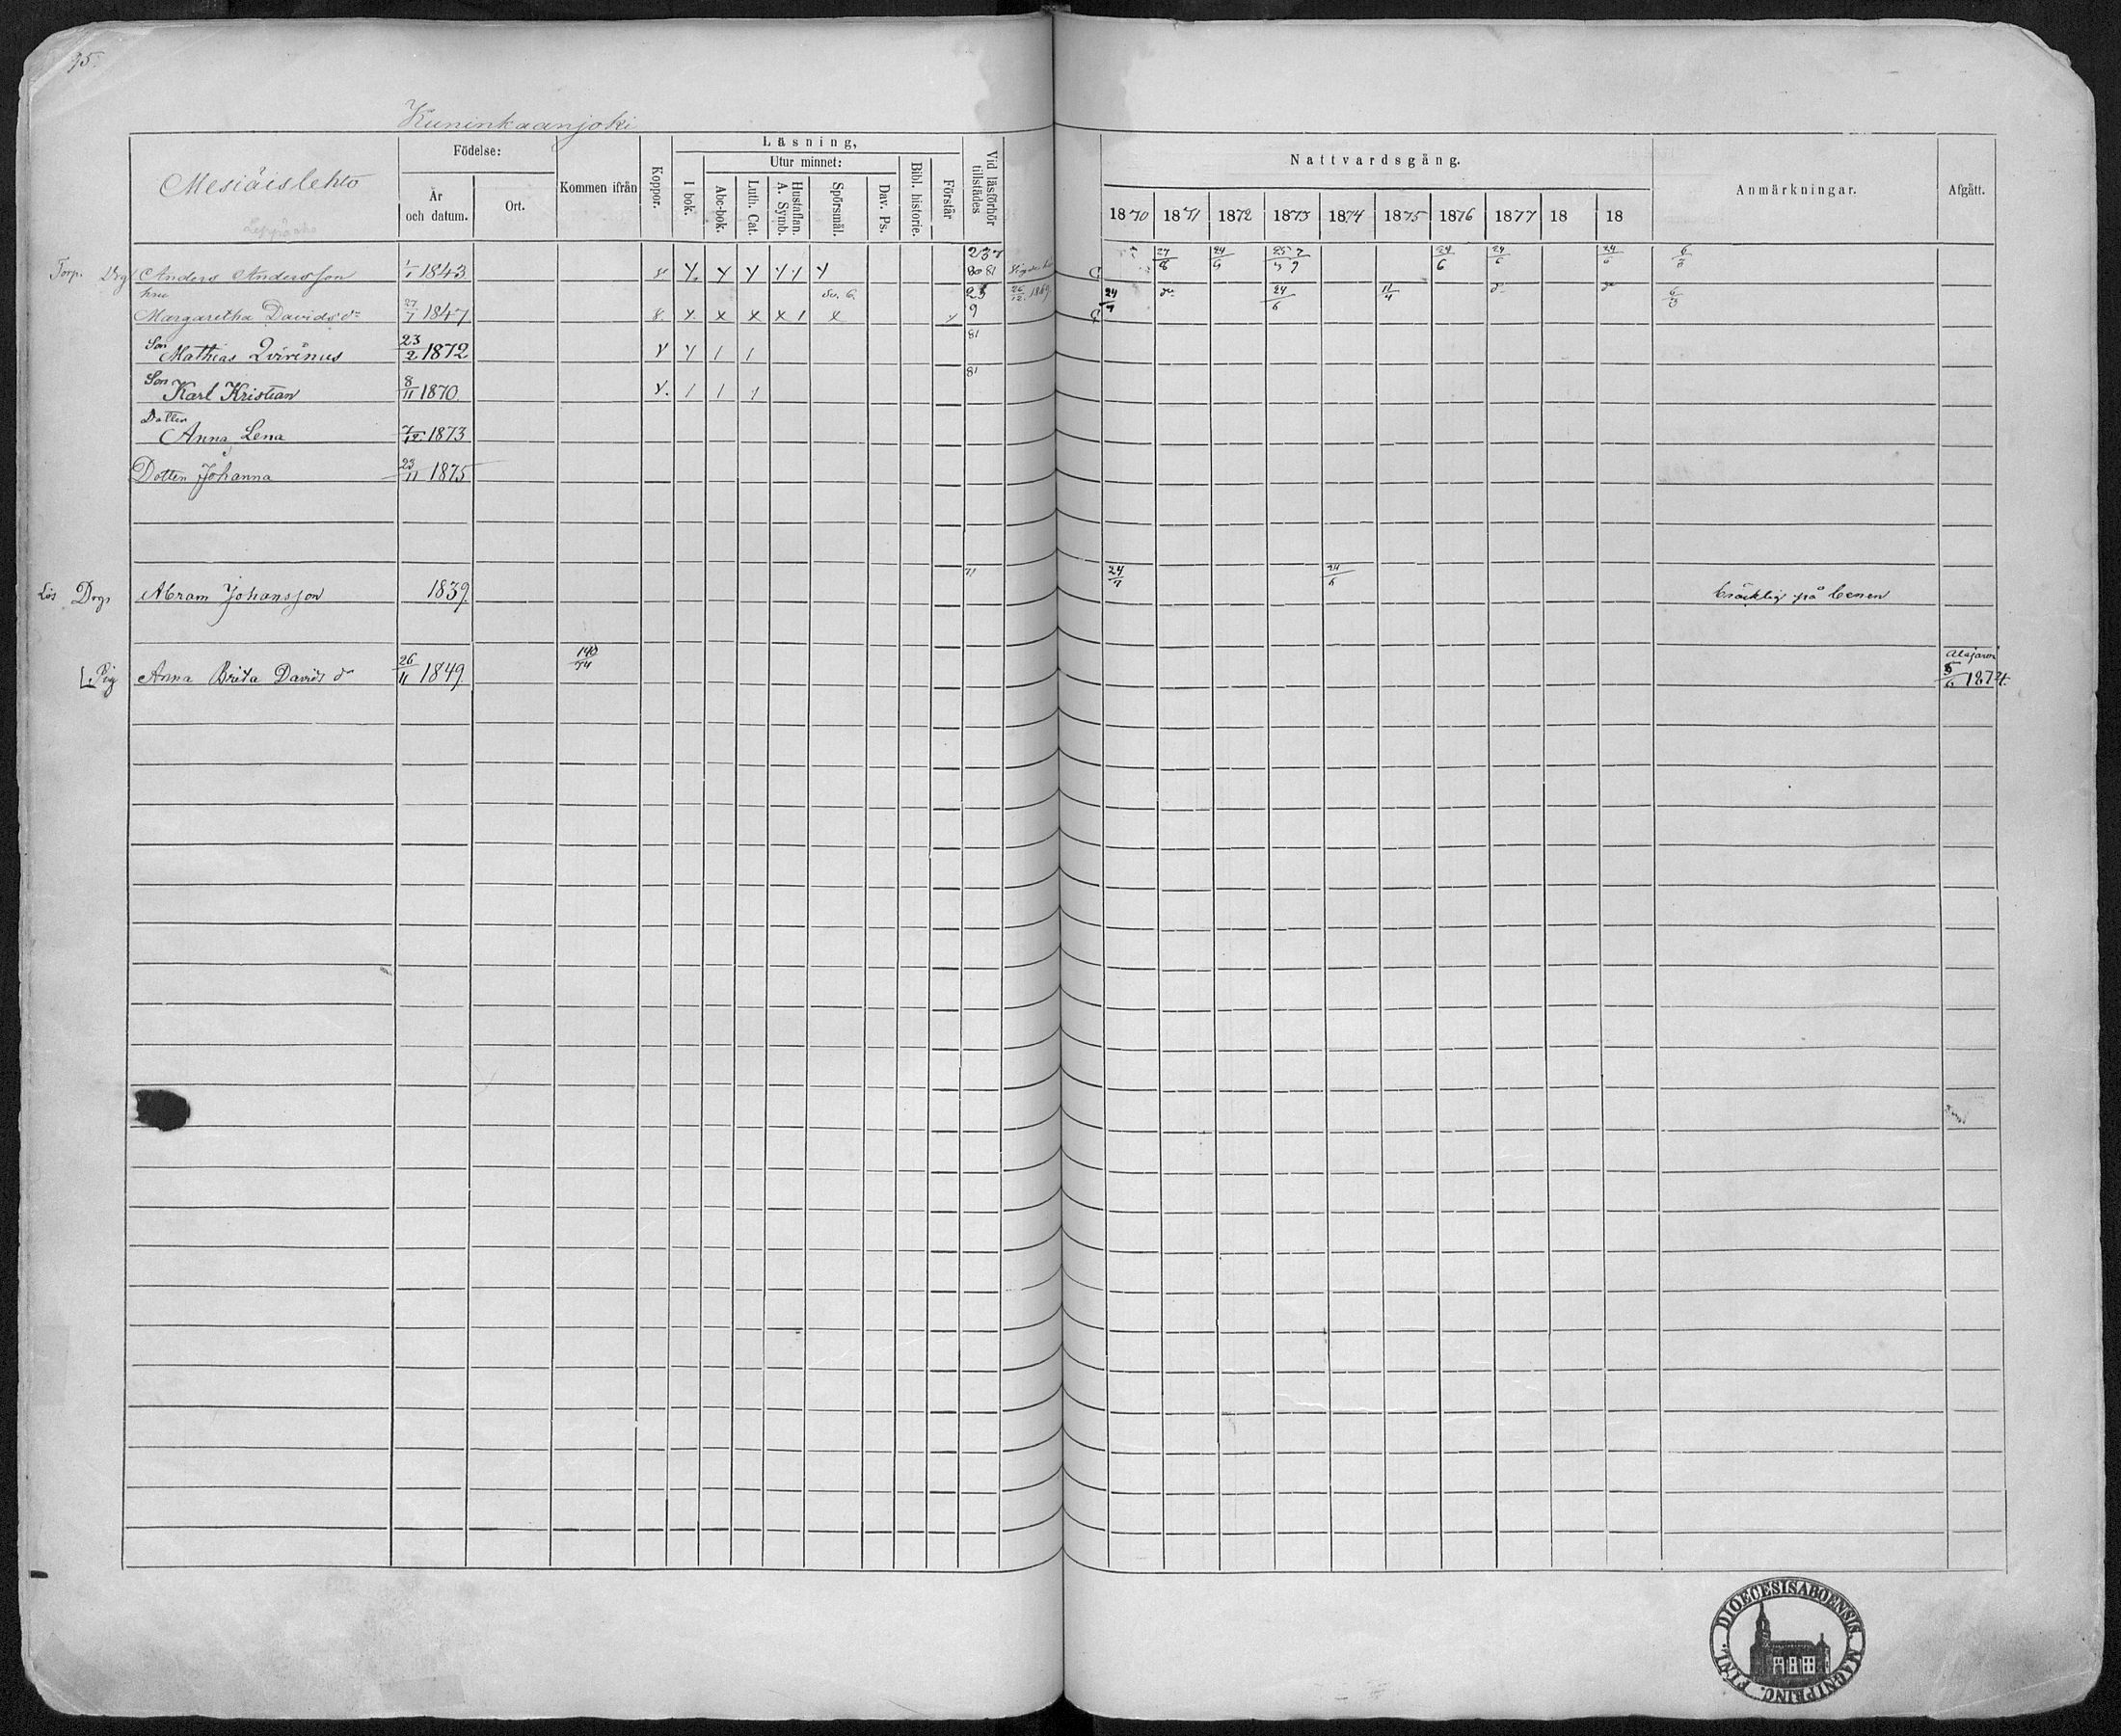 95.
Kuninkaanjoki
Mesiäislehto
Födelse:
År och datum.
Ort.
Kommen ifrån
Koppor.
Läsning,
I bok.
Utur minnet:
Abc-bok.
Luth. Cat.
Hustaflan. A. Symb.
Spörsmål.
Dav. Ps.
Bibl. historie.
Förstår
Vid läsförhör tillstädes
Nattvardsgång.
1870 1871 1872 1873 1874 1875 1876 1877 18 18
Anmärkningar.
Afgått.
Torp. Drg Anders Andersson 1/1 1843 80 81
hru Margaretha Davids dr 27/1 1847 Sv. 6. 23 9 26/12 1869 24/7 24/6 11/4 6/3
Son Mathias Qvirinus 23/2 1872 81
Son Karl Kristian 8/11 1870 81
Dotter Anna Lena 7/12 1873
Dotter Johanna 23/11 1875
Lös Drg, Abram Johansson 1839 71 24/7 24/6 bräcklig på benen
Pig Anna Brita Davids dr 26/11 1849 140/74 Alajärvi 5/6 1874.
FINL. DIOECESIS ABOENSIS. MAGNI PRINC.